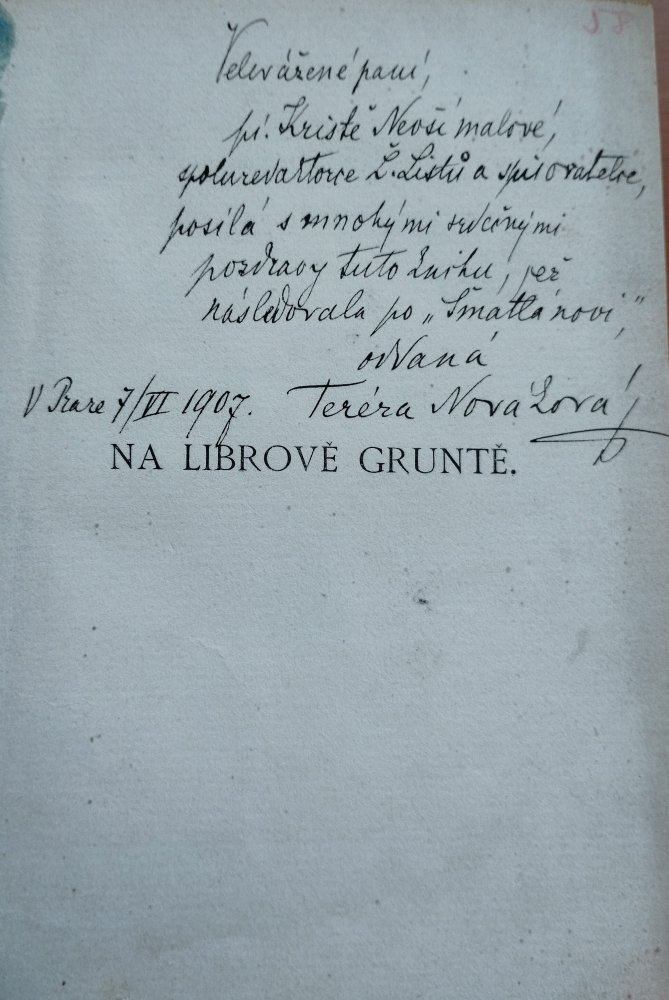 58
Velevážené paní,
pí. Kristě Nevšímalové,
spoluredaktorce Ž. Listů a spisovatelce,
posílá s mnohými srdečnými
pozdravy tuto knihu, jež
následovala po „Šmatlánovi,"
oddaná
V Praze 7/VI 1907. Teréza Nováková
NA LIBROVĚ GRUNTĚ.